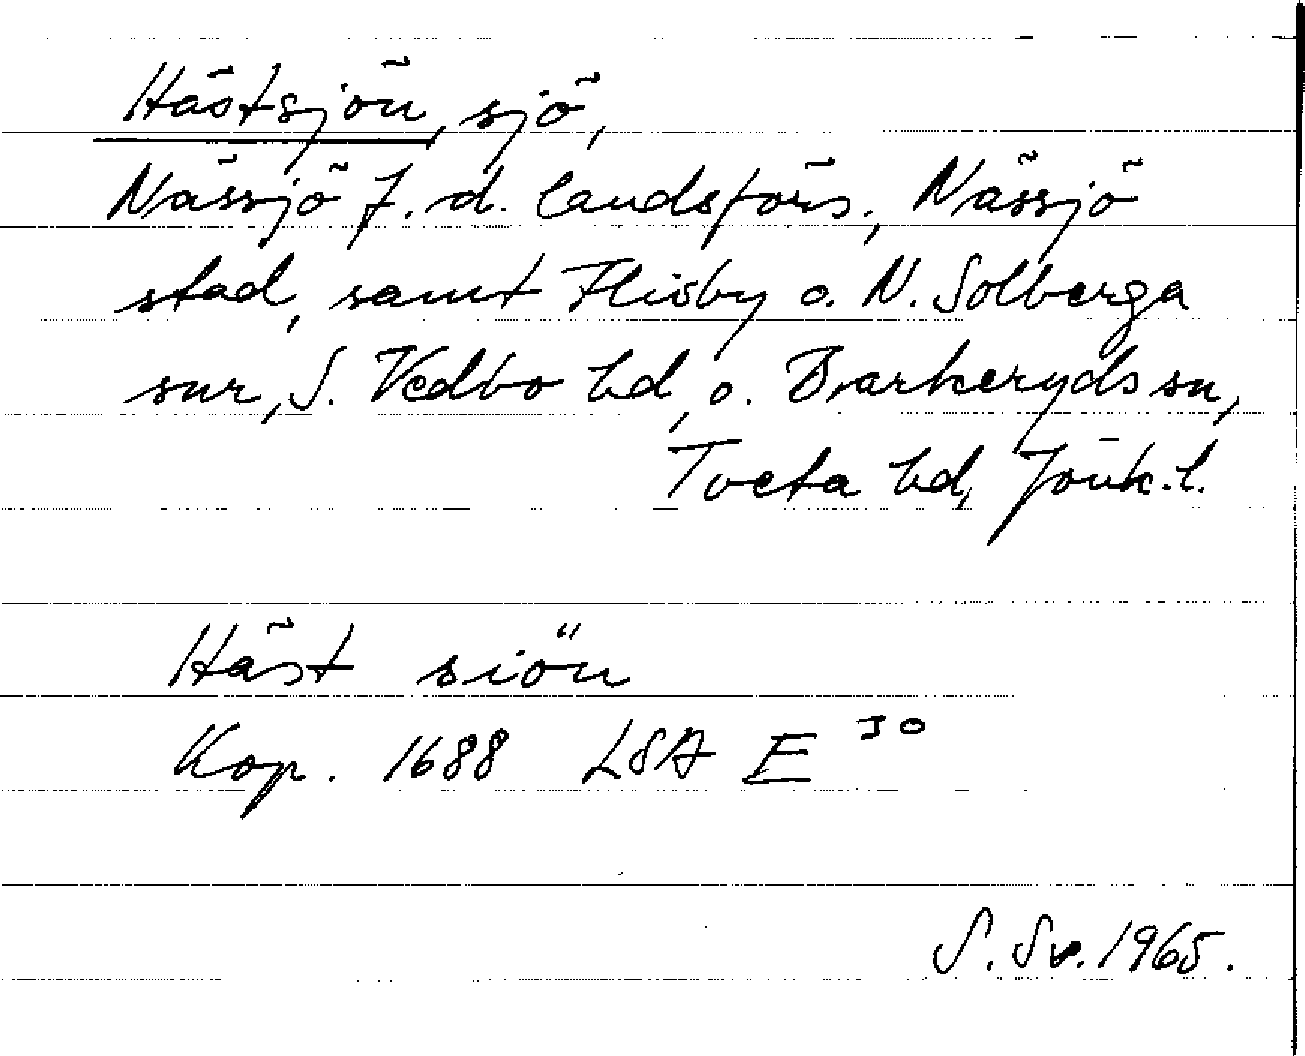 Hästsjön, sjö,
Nässjö f. d. landsförs., Nässjö
stad, samt Flisby o. N. Solberga
snr, S. Vedbo hd, o. Barkeryds sn,
Tveta hd, Jönk. l.
Häst siön
Kop. 1688 LSA E 30
S. Sv. 1965.